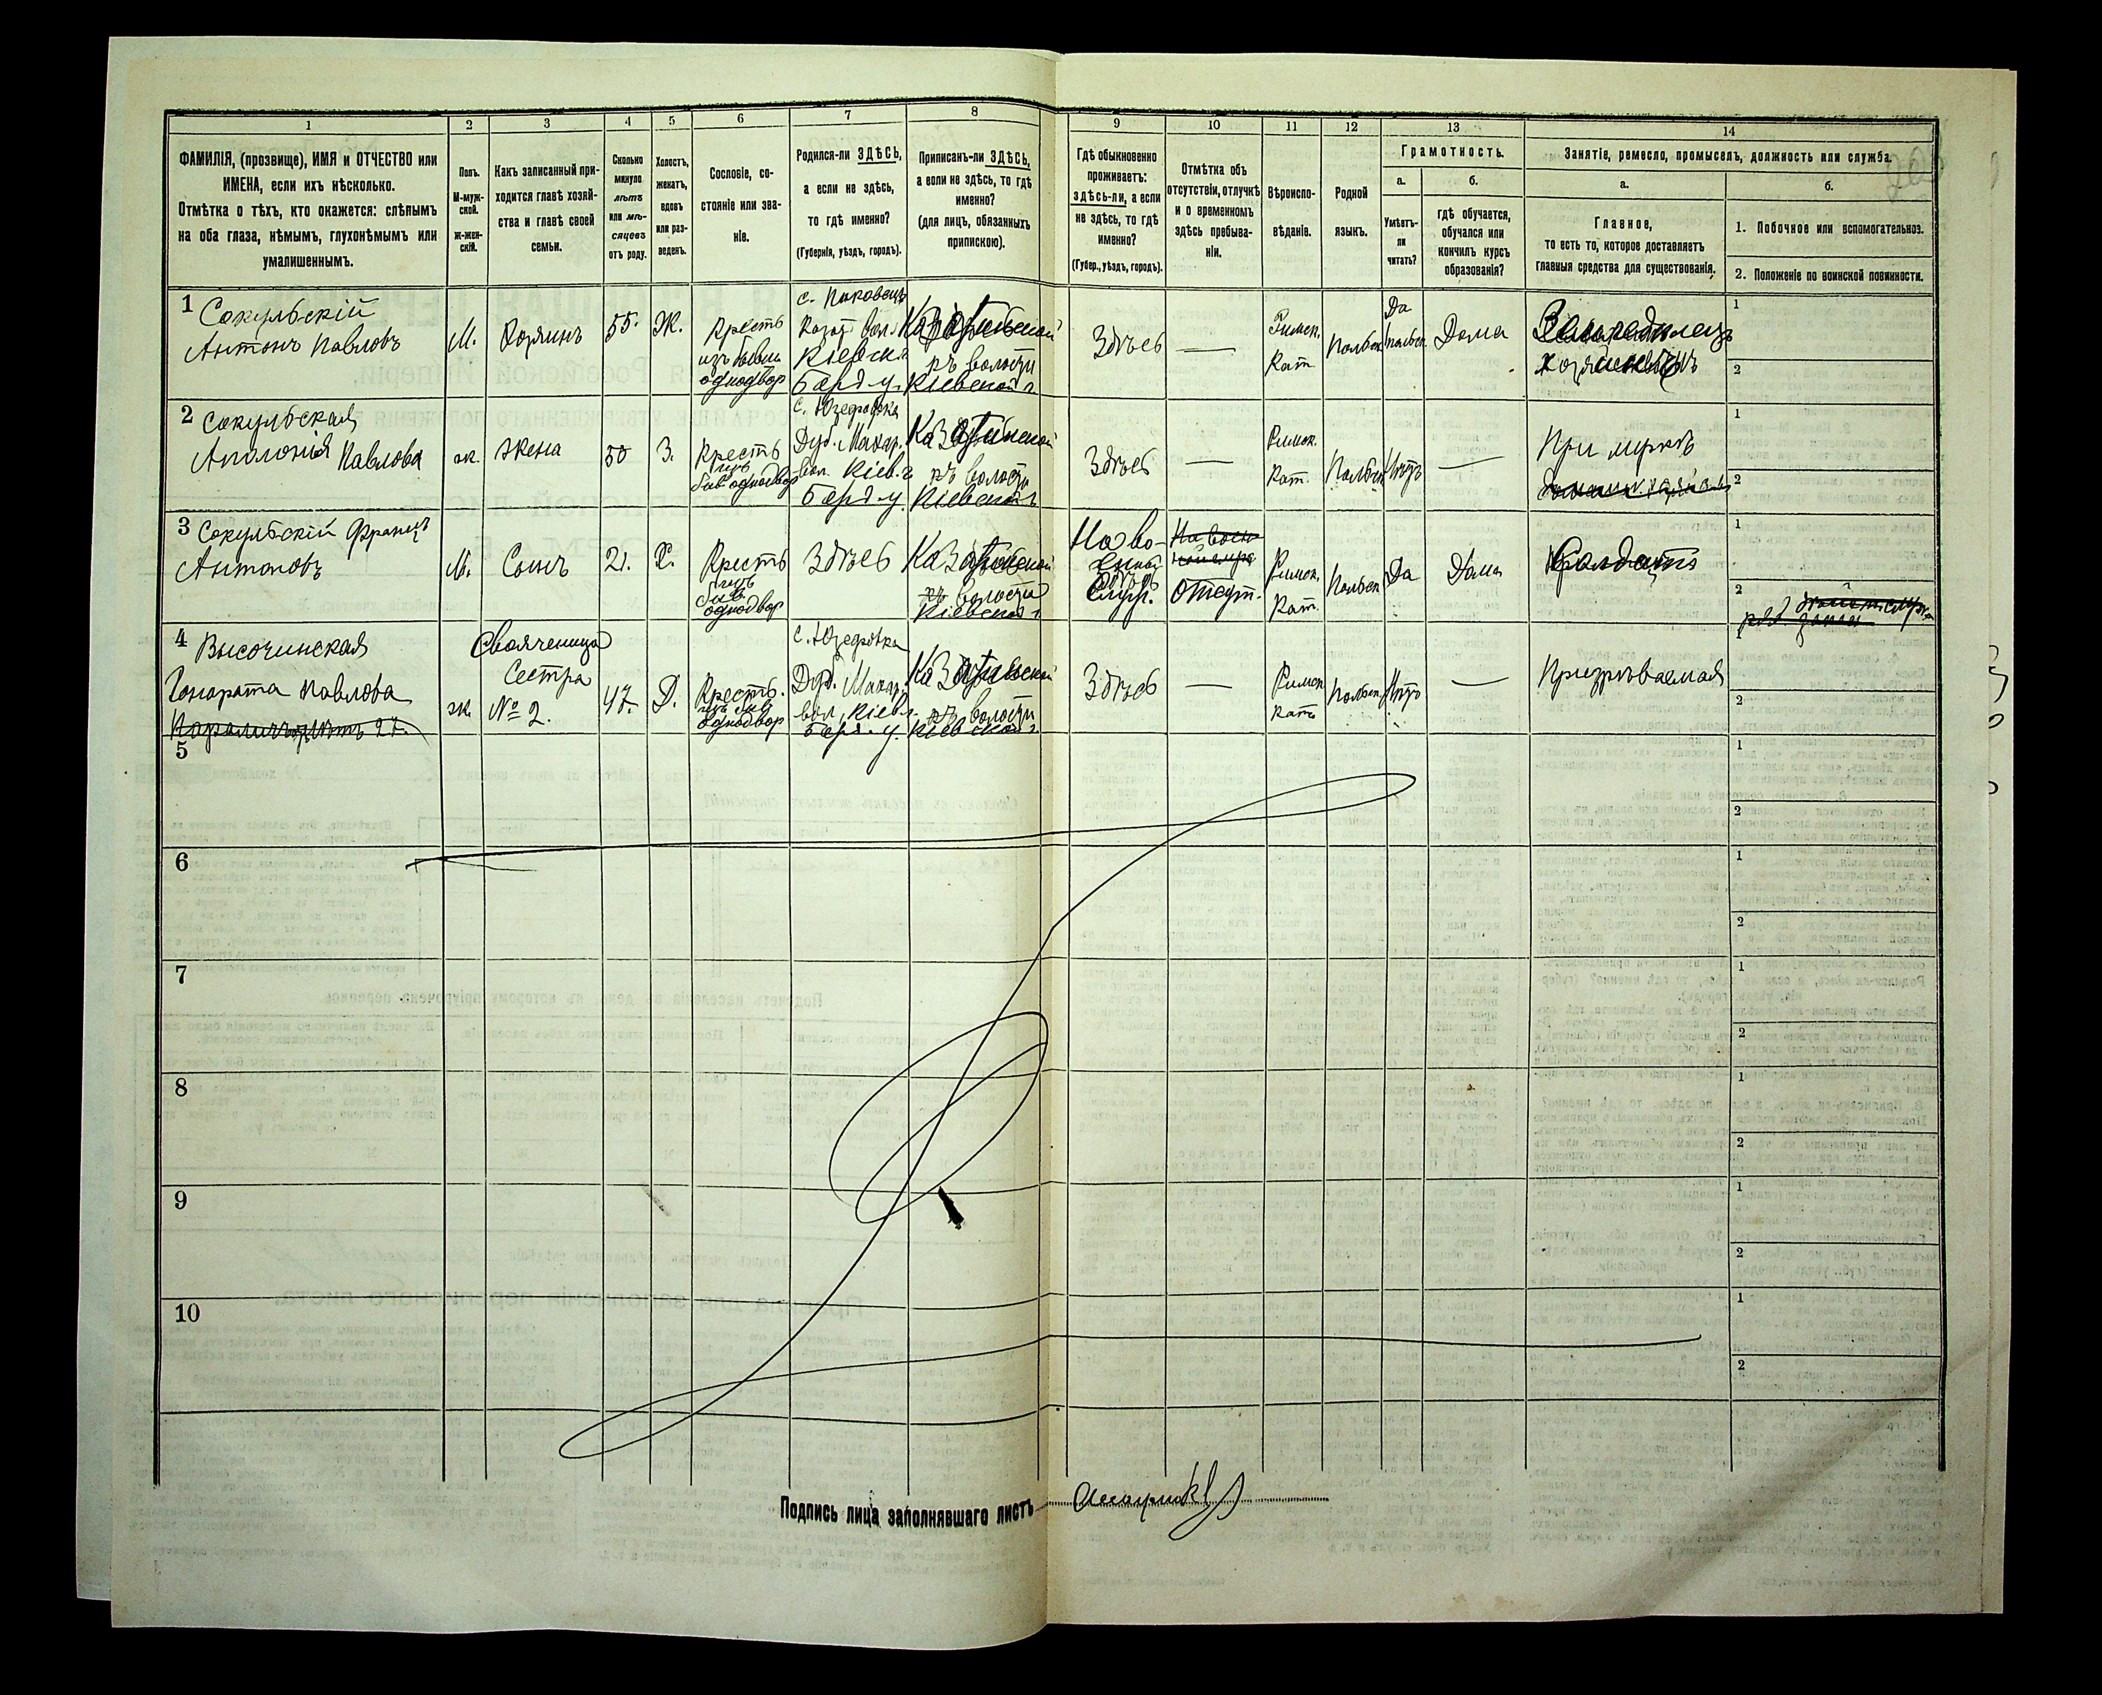 1
2
3
4
5
6
7
8
9
10
11
12
13
14
ФАМИЛІЯ, (прозвище), ИМЯ и ОТЧЕСТВО или
ИМЕНА, если ихъ нѣсколько.
Отмѣтка о тѣхъ, кто окажется: слѣпымъ
на оба глаза, нѣмымъ, глухонѣмымъ или
умалишеннымъ.
Полъ.
М-муж-
ской.
ж-жен-
скій.
Какъ записанный при-
ходится главѣ хозяй-
ства и главѣ своей
семьи.
Сколько
минуло
лѣтъ
или мѣ-
сяцевъ
отъ роду.
Холостъ,
женатъ,
вдовъ
или раз-
веденъ.
Сословіе, со-
стояніе или зва-
ніе.
Родился-ли ЗДѢСЬ,
а если не здѣсь,
то гдѣ именно?
(Губернія, уѣздъ, городъ).
Приписанъ-ли ЗДѢСЬ,
а если не здѣсь, то гдѣ
именно?
(для лицъ, обязанныхъ
припискою).
Гдѣ обыкновенно
проживаетъ:
здѣсь-ли, а если
не здѣсь, то гдѣ
именно?
(Губер., уѣздъ, городъ).
Отмѣтка объ
отсутствіи, отлучкѣ
и о временномъ
здѣсь пребыва-
ніи.
Вѣроиспо-
вѣданіе.
Родной
языкъ.
Грамотность.
а.
Умѣетъ-
ли
читать?
б.
гдѣ обучается,
обучался или
кончилъ курсъ
образованія?
Занятіе, ремесло, промыселъ, должность или служба.
а.
Главное,
то есть то, которое доставляетъ
главныя средства для существованія.
б.
1. Побочное или вспомогательное.
2. Положеніе по воинской повинности.
1
Сокульскій
Антонъ Павловъ
М.
Хозяинъ
55.
Ж.
Крестъ
изъ бывш
однодвор
Кіевск.
Берд. у.
волости
Кіевской г.
Здѣсь
—
Римск.
Кат.
Польск
Да
польск
Дома
1
2
2
Сокульская
Аполонія Павлова
ж.
жена
50
З.
Крестъ
изъ
быв однодвор
с. Юзефовка
Махар.
вол. Кіев. г.
Берд. у.
Казатинской
волости
Кіевской г.
Здѣсь
—
Римск.
Кат.
Польск
Нѣтъ
—
При мужѣ
1
2
3
Сокульскій Францъ
Антоновъ
М.
Сынъ
21.
Х.
Крестъ
изъ
быв
однодвор
Здѣсь
Казатинской
волости
Кіевской г.
На во-
енной
служ.
отсут.
Римск.
Кат.
Польск
Да
Дома
Солдатъ
1
2
4
Высочинская
Гонората Павлова
ж.
Свояченица
Сестра
№ 2.
47.
Д.
Крестъ.
изъ быв
однодвор
с. Юзефовка
Махар.
вол. Кіев. г.
Берд. у.
Казатинской
волости
Кіевской г.
Здѣсь
—
Римск
Катъ
Польск
Нѣтъ
—
Призрѣваемая
1
2
5
1
2
6
1
2
7
1
2
8
1
2
9
1
2
10
1
2
Подпись лица заполнявшаго листъ